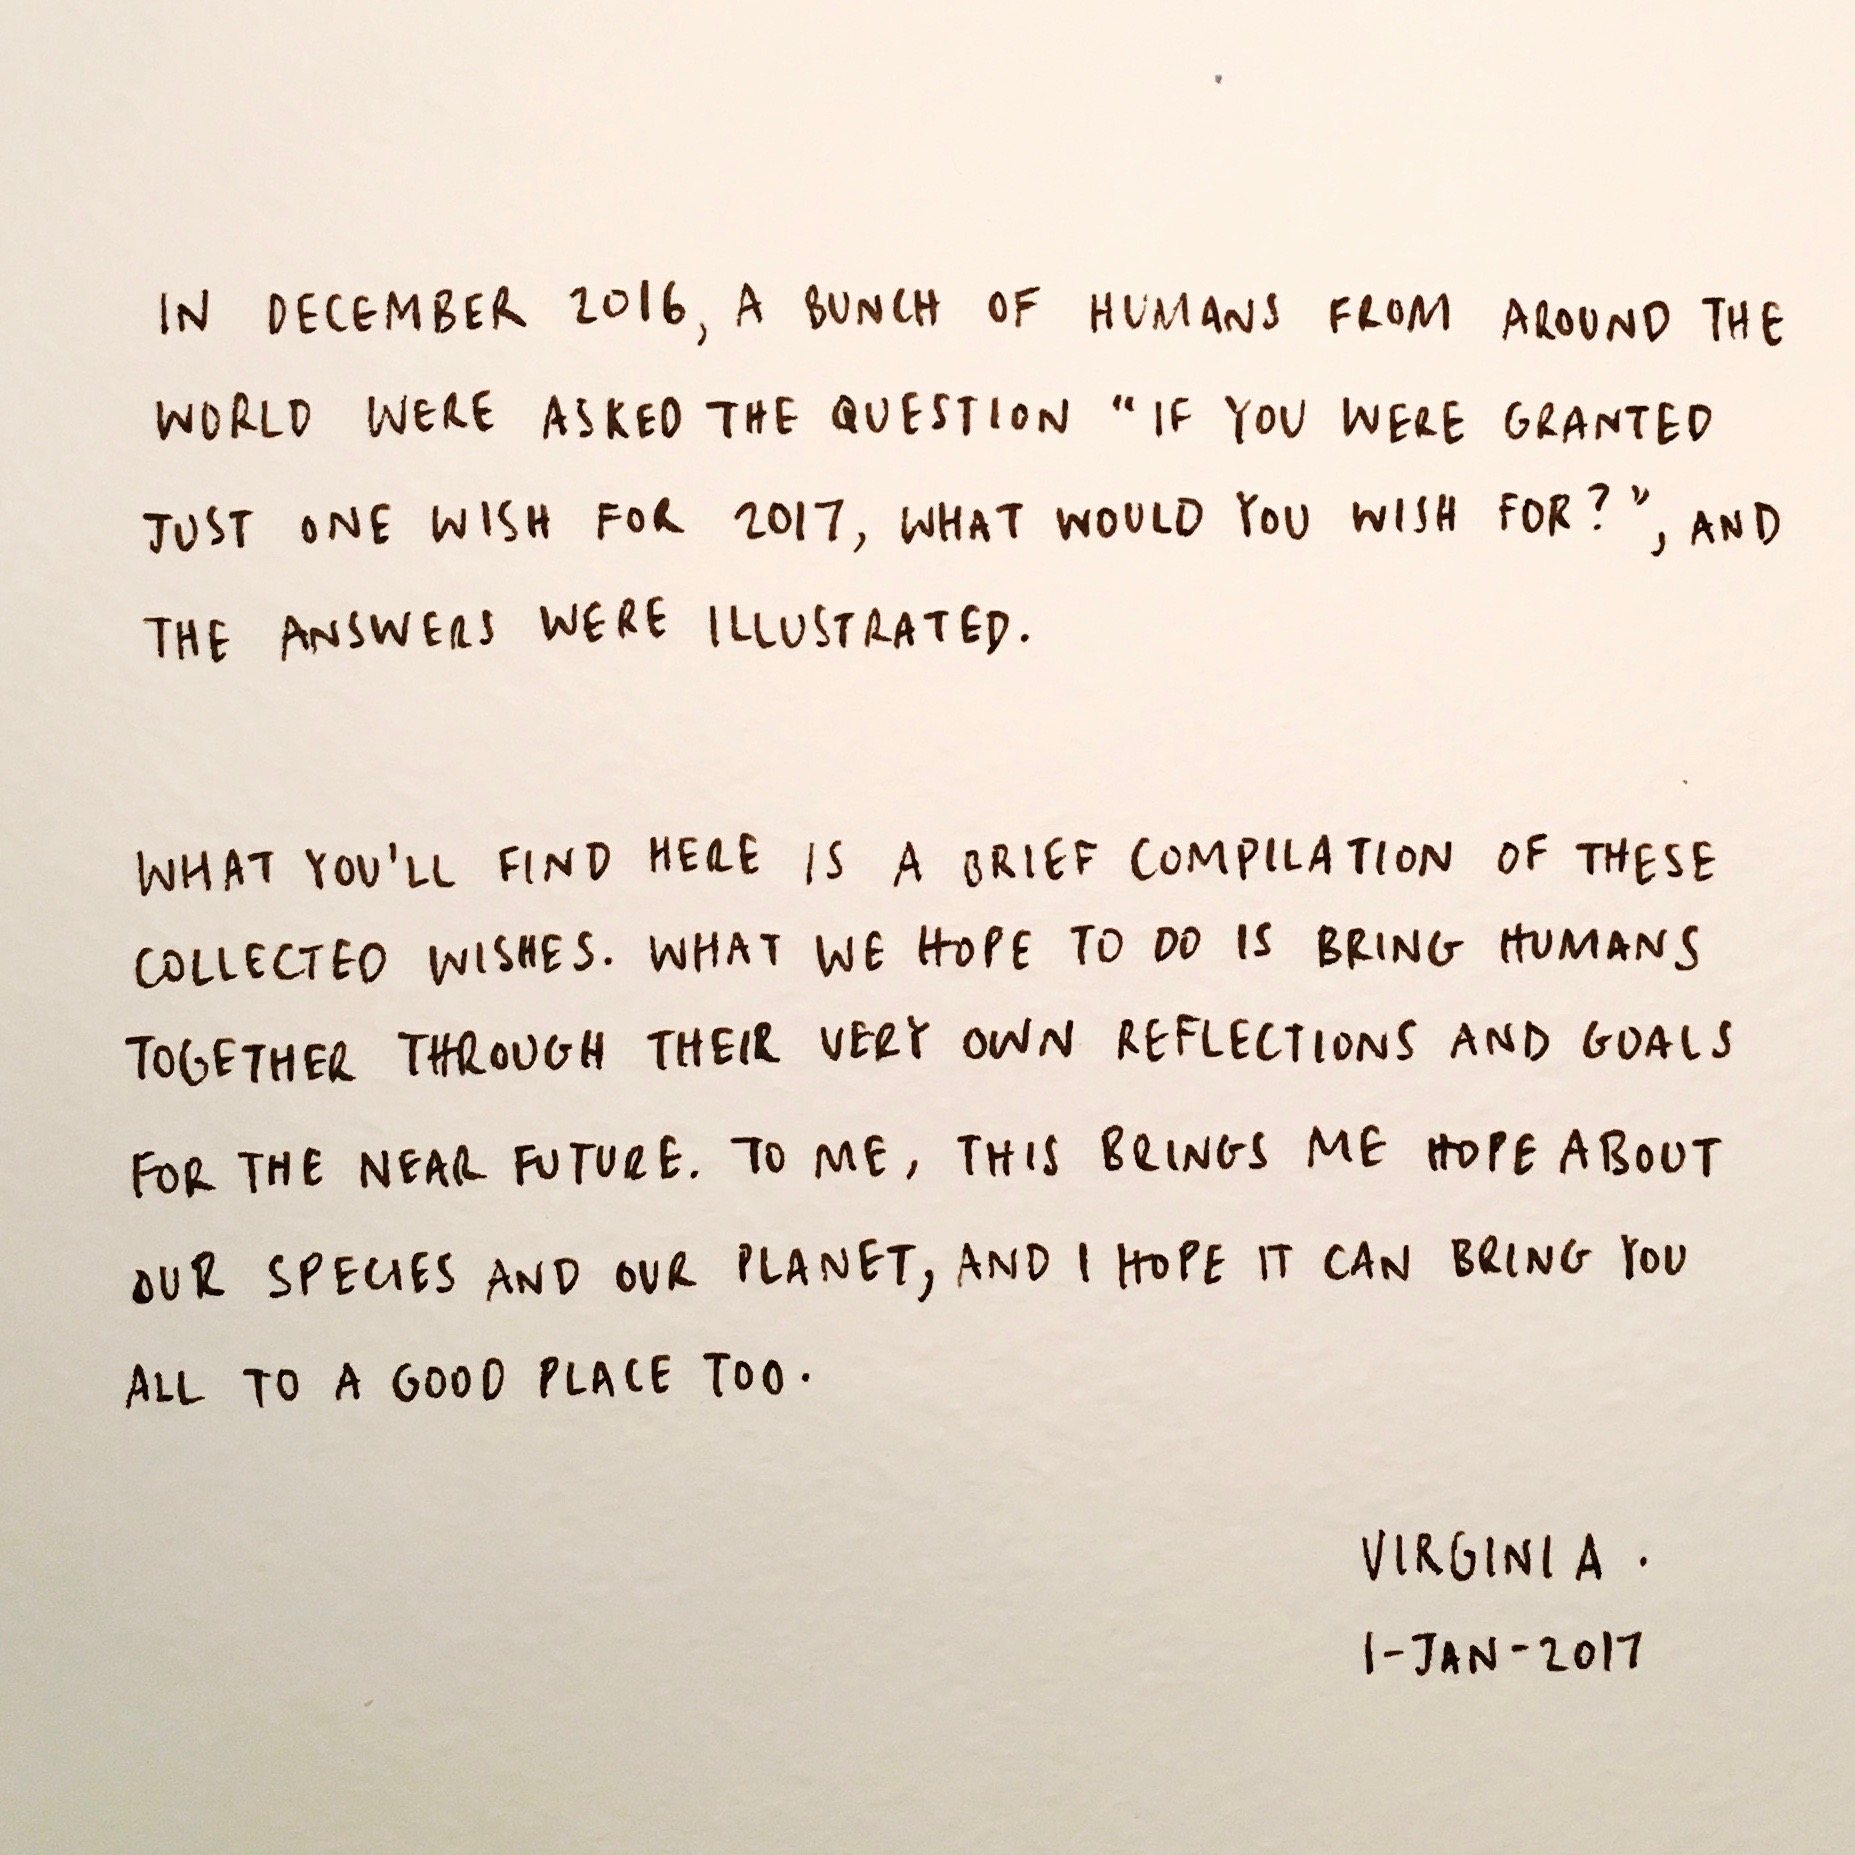 IN DECEMBER 2016, A BUNCH OF HUMANS FROM AROUND THE
WORLD WERE ASKED THE QUESTION "IF YOU WERE GRANTED
JUST ONE WISH FOR 2017, WHAT WOULD YOU WISH FOR?", AND
THE ANSWERS WERE ILLUSTRATED.
WHAT YOU'LL FIND HERE IS A BRIEF COMPILATION OF THESE
COLLECTED WISHES. WHAT WE HOPE TO DO IS BRING HUMANS
TOGETHER THROUGH THEIR VERY OWN REFLECTIONS AND GOALS
FOR THE NEAR FUTURE. TO ME, THIS BRINGS ME HOPE ABOUT
OUR SPECIES AND OUR PLANET, AND I HOPE IT CAN BRING YOU
ALL TO A GOOD PLACE TOO.
VIRGINIA.
1-JAN-2017